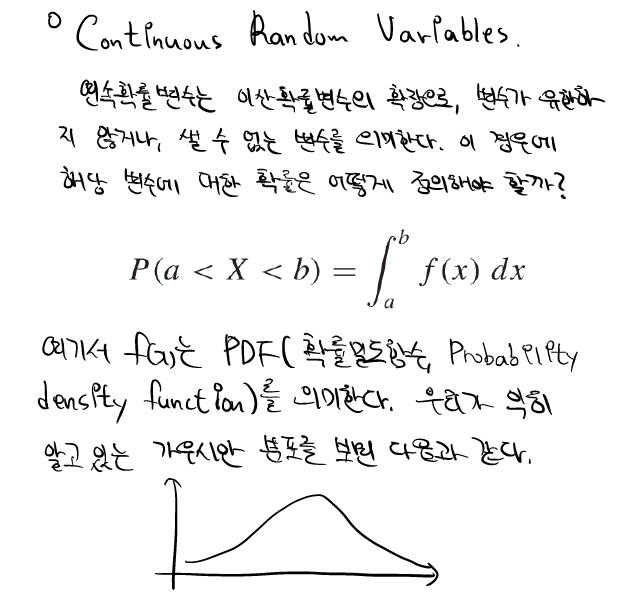 ° Continuous Random Variables.
연속확률변수는 이산확률변수의 확장으로, 변수가 유한하
지 않거나, 셀 수 없는 변수를 의미한다. 이 경우에
해당 변수에 대한 확률은 어떻게 정의해야 할까?
P(a < X < b) = ∫_a^b f(x) dx
여기서 f(x)는 PDF(확률밀도함수, Probability
density function)를 의미한다. 우리가 익히
알고 있는 가우시안 분포를 보면 다음과 같다.